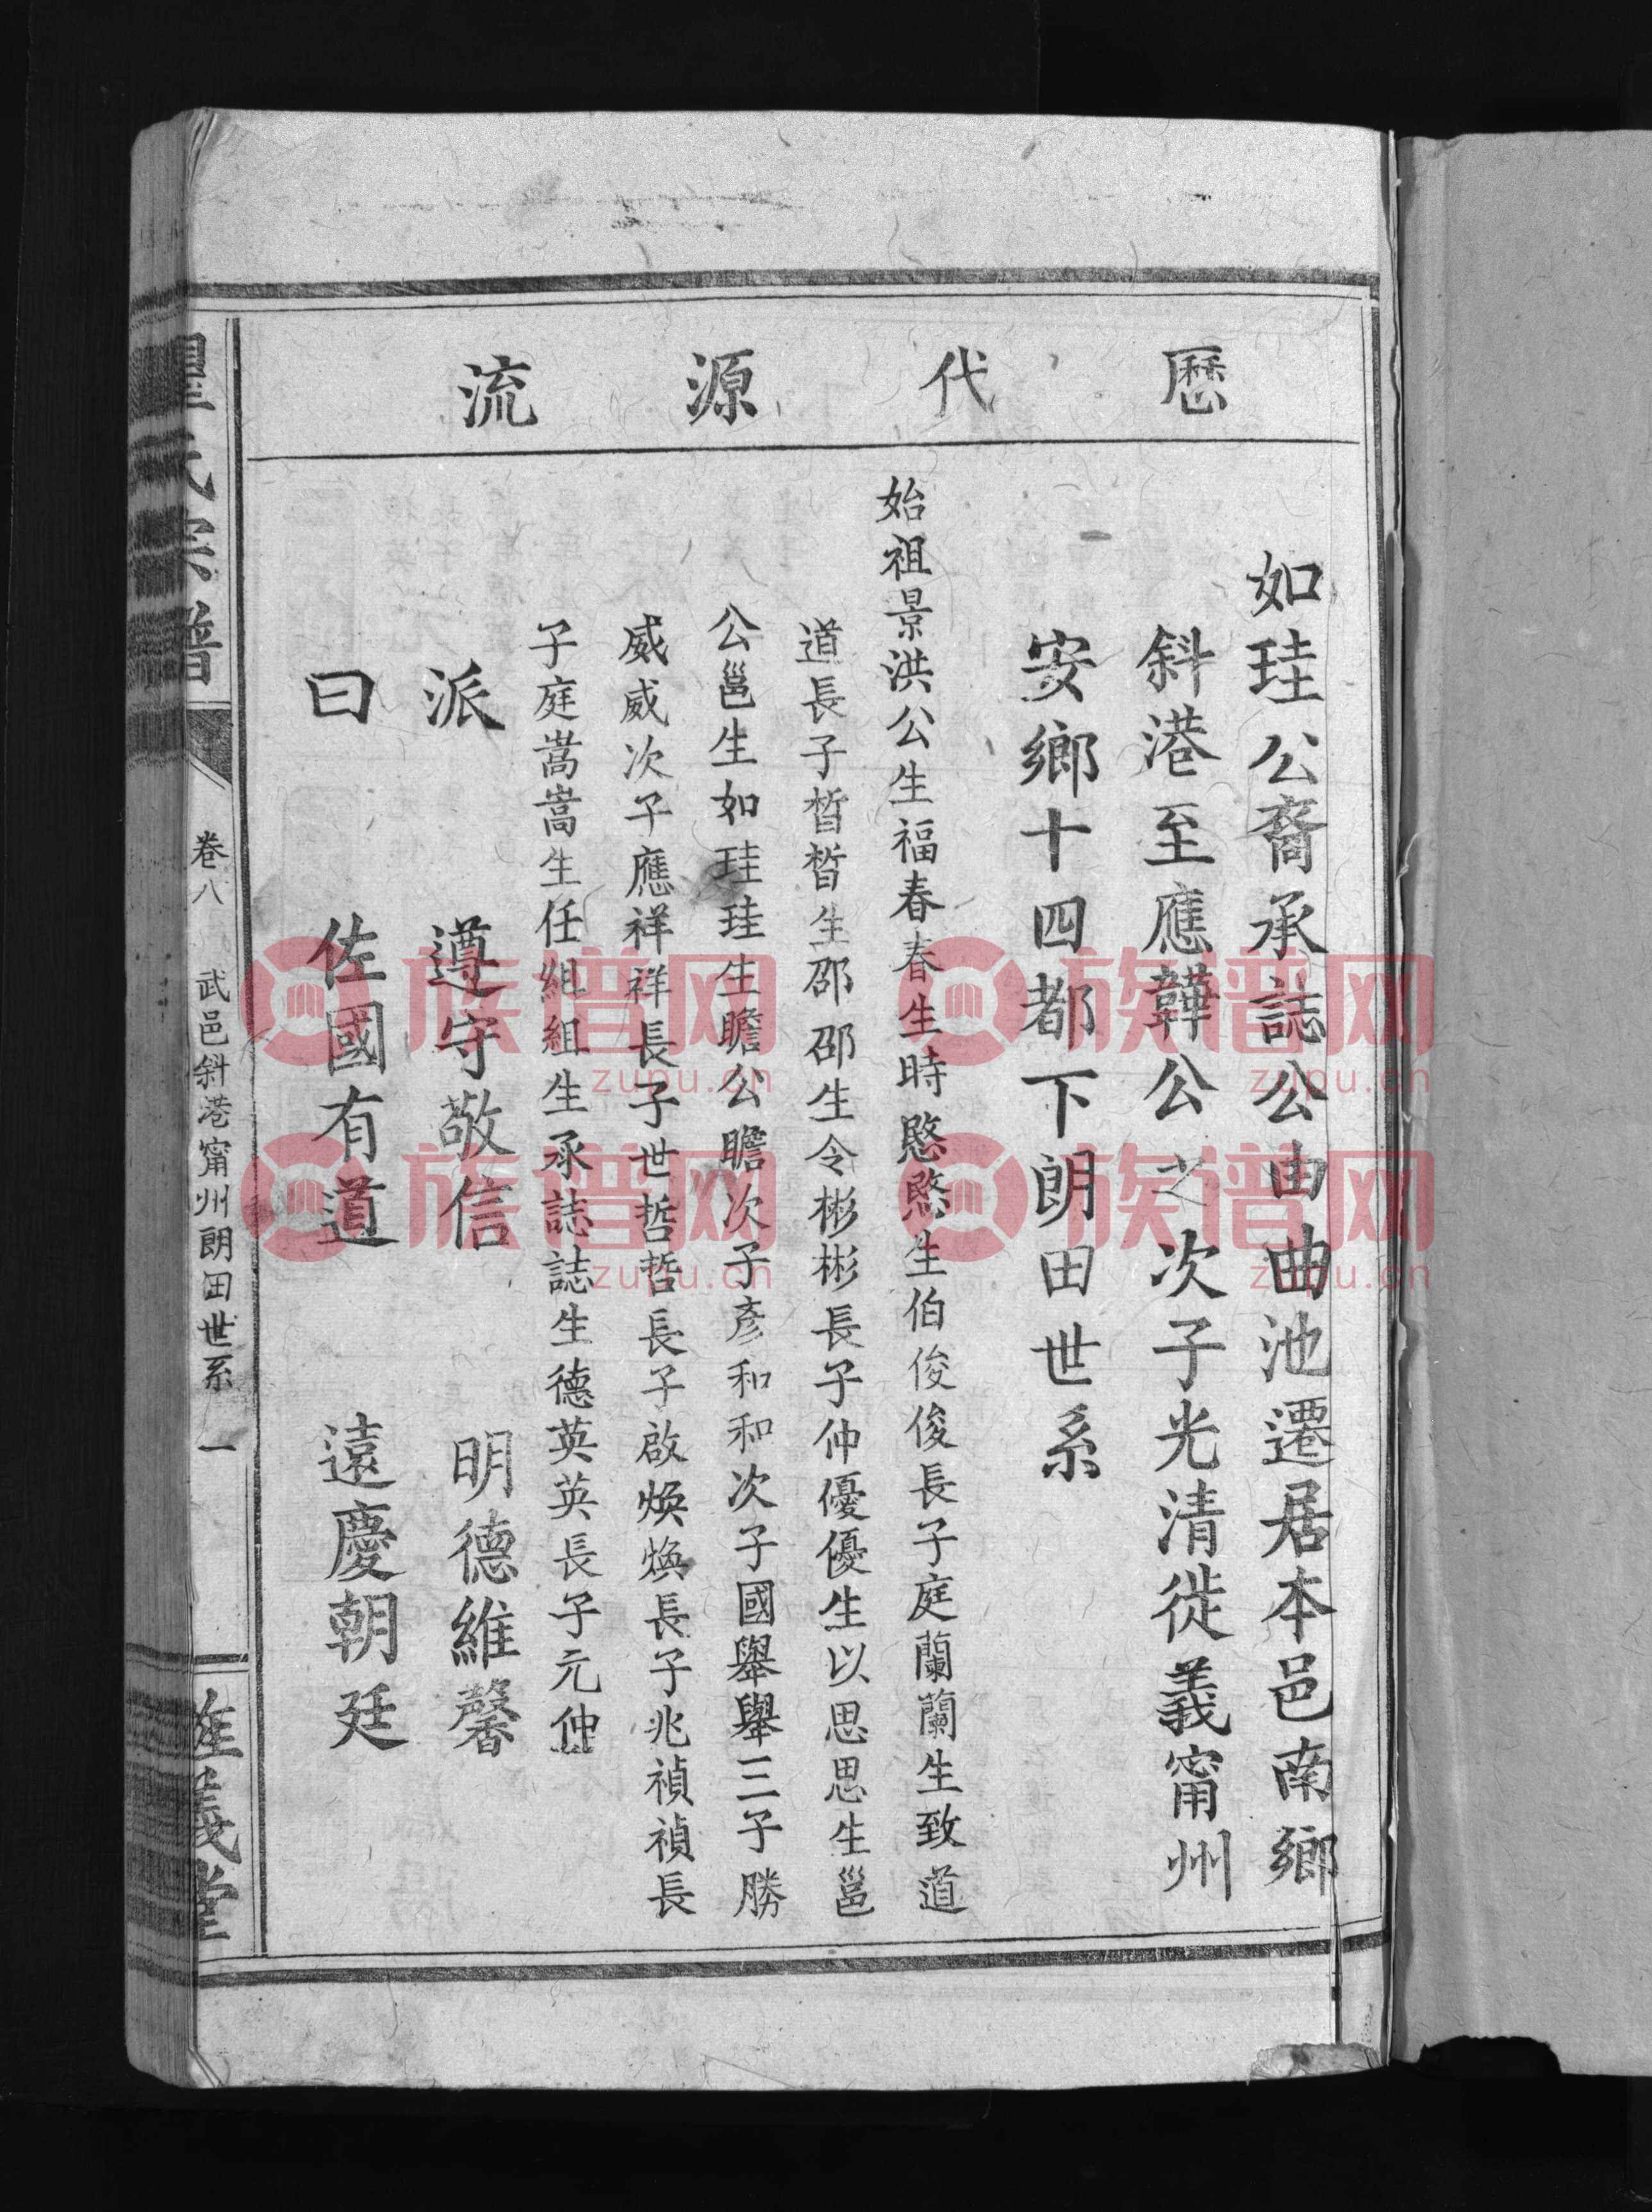 歷代源流
如珪公裔承誌公由曲池遷居本邑南鄉
斜港至應韡公之次子光清徙義甯州
安鄉十四都下朗田世系
始祖景洪公生福春春生時愍愍生伯俊俊長子庭蘭蘭生致道
道長子晳晳生邵邵生令彬彬長子仲優優生以思思生邕
公邕生如珪珪生瞻公瞻次子彥和和次子國舉舉三子勝
威威次子應祥祥長子世哲哲長子啟煥煥長子兆禎禎長
子庭嵩嵩生任組組生承誌誌生德英英長子元仲
派 遵守敬信 明德維馨
曰 佐國有道 遠慶朝廷
氏宗譜
卷八 武邑斜港甯州朗田世系 一
義堂
族谱网
zupu.cn
族谱网
zupu.cn
族谱网
zupu.cn
族谱网
zupu.cn